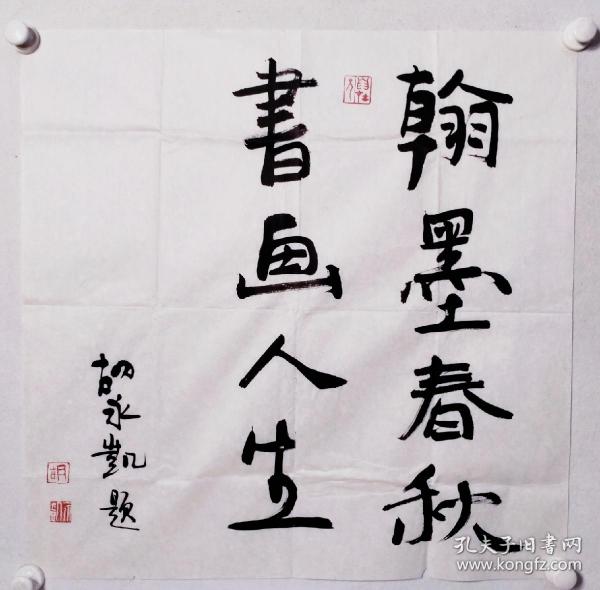 翰墨春秋
書画人生
胡永凯題
孔夫子旧書网
www.kongfz.com